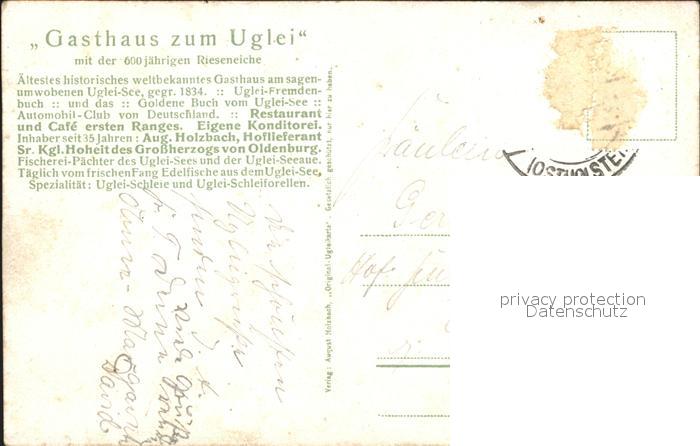 „Gasthaus zum Uglei“
mit der 600jährigen Rieseneiche
Ältestes historisches weltbekanntes Gasthaus am sagen-
umwobenen Uglei-See, gegr. 1834. :: Uglei-Fremden-
buch :: und das :: Goldene Buch vom Uglei-See ::
Automobil-Club von Deutschland. :: Restaurant
und Café ersten Ranges. Eigene Konditorei.
Inhaber seit 35 Jahren: Aug. Holzbach, Hoflieferant
Sr. Kgl. Hoheit des Großherzogs von Oldenburg.
Fischerei-Pächter des Uglei-Sees und der Uglei-Seeaue.
Täglich vom frischen Fang Edelfische aus dem Uglei-See,
Spezialität: Uglei-Schleie und Uglei-Schleiforellen.
Verlag: August Holzbach, „Original-Ugleikarte“. Gesetzlich geschützt, nur hier zu haben.
Fräulein
Ger
Hof
(OSTHOLSTEI
privacy protection
Datenschutz
Die schönsten
Ugleigrüße
senden
Anna-Margaret